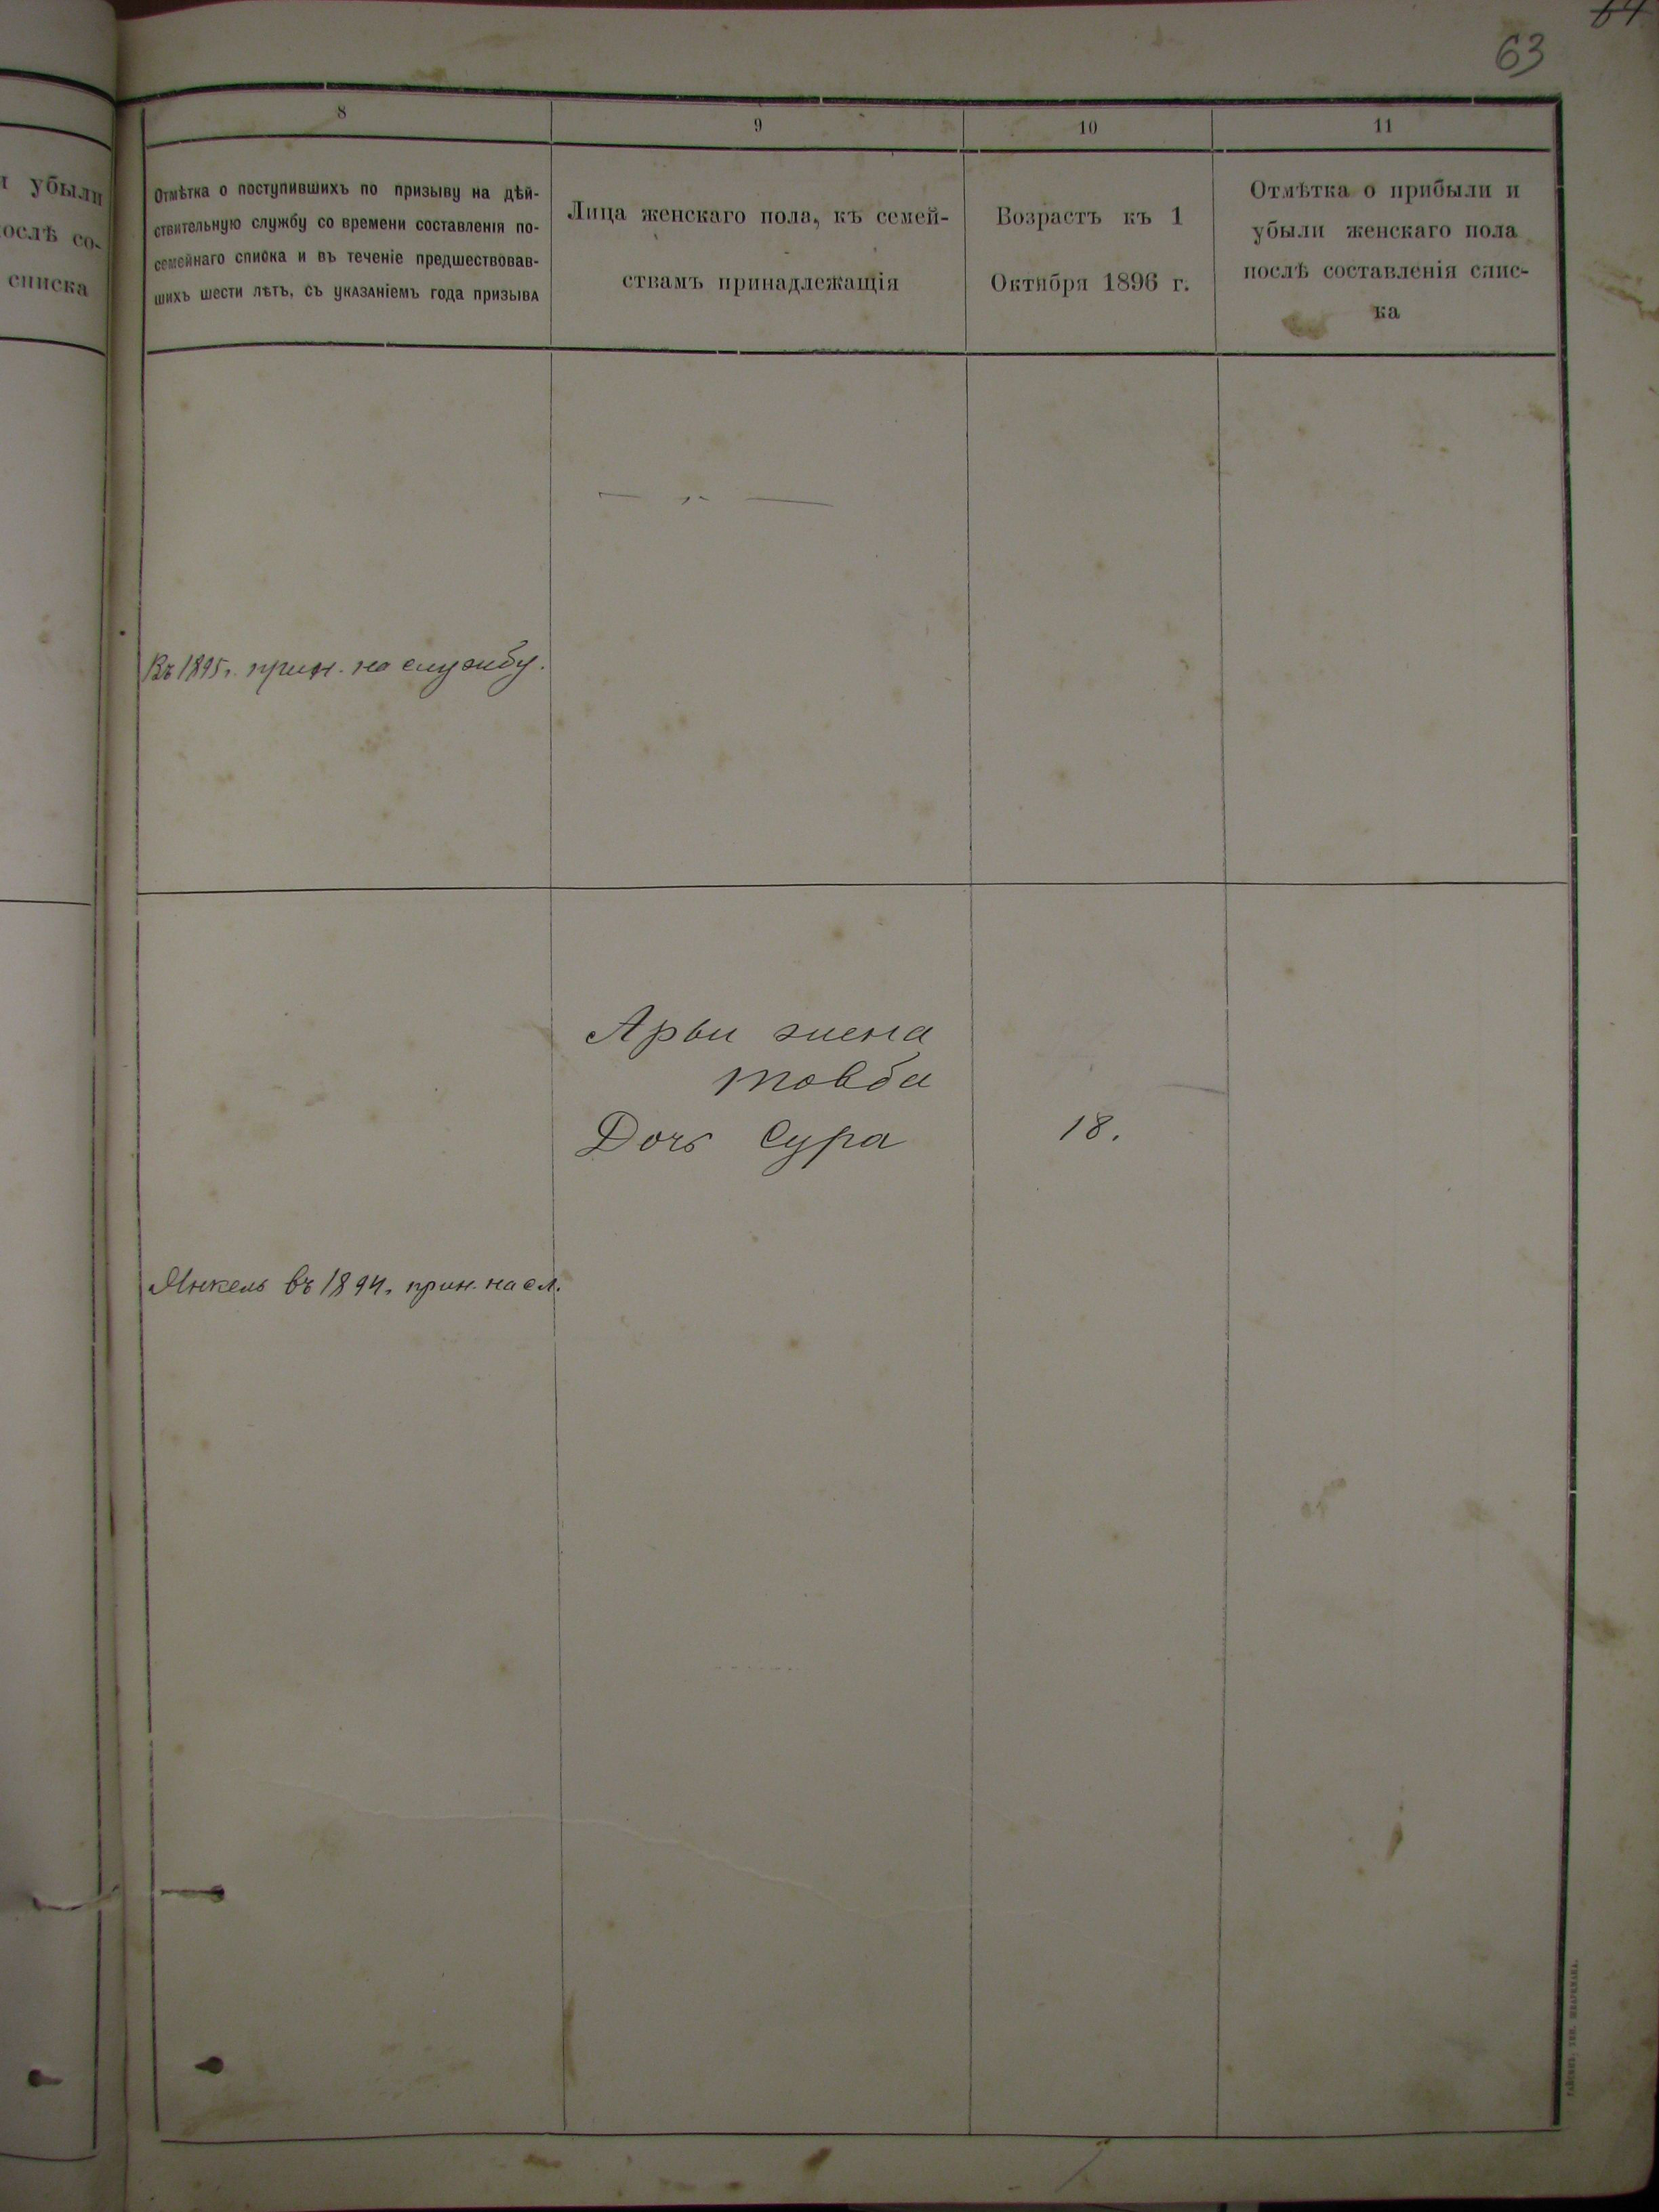 64
63
и убыли
послѣ со-
списка
8
9
10
11
Отмѣтка о поступившихъ по призыву на дѣй-
ствительную службу со времени составленія по-
семейнаго списка и въ теченіе предшествовав-
шихъ шести лѣтъ, съ указаніемъ года призыва
Лица женскаго пола, къ семей-
ствамъ принадлежащія
Возрастъ къ 1
Октября 1896 г.
Отмѣтка о прибыли и
убыли женскаго пола
послѣ составленія спис-
ка
— „ —
Въ 1895 г. прин. на службу.
Арьи жена
Товба
Дочь Сура
18.
Янкель въ 1894. прин. на сл.